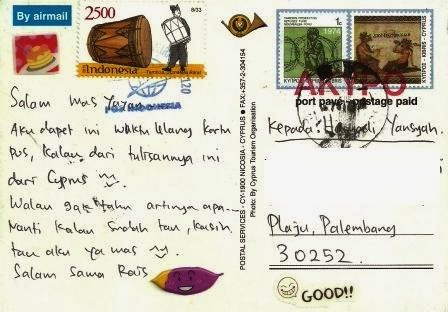 By airmail
2500
8/33
Indonesia
Salam Mas Yayan
Aku dapet ini waktu ulang kartu
pos, kalau dari tulisannya ini
dari Cyprus
Walau gak tahu artinya apa..
Nanti kalau sudah tau, kasih
tau aku ya mas
Salam sama Rais
POSTAL SERVICES - CY-1900 NICOSIA - CYPRUS FAX:+357-2-304154
Photo: By Cyprus Tourism Organisation
1c
1974
ΚΥΠΡΟΣ KIBRIS CYPRUS
ΑΚΥΡΟ
port payé postage paid
Kepada: Haryadi Yansyah
Plaju, Palembang
30252
GOOD!!